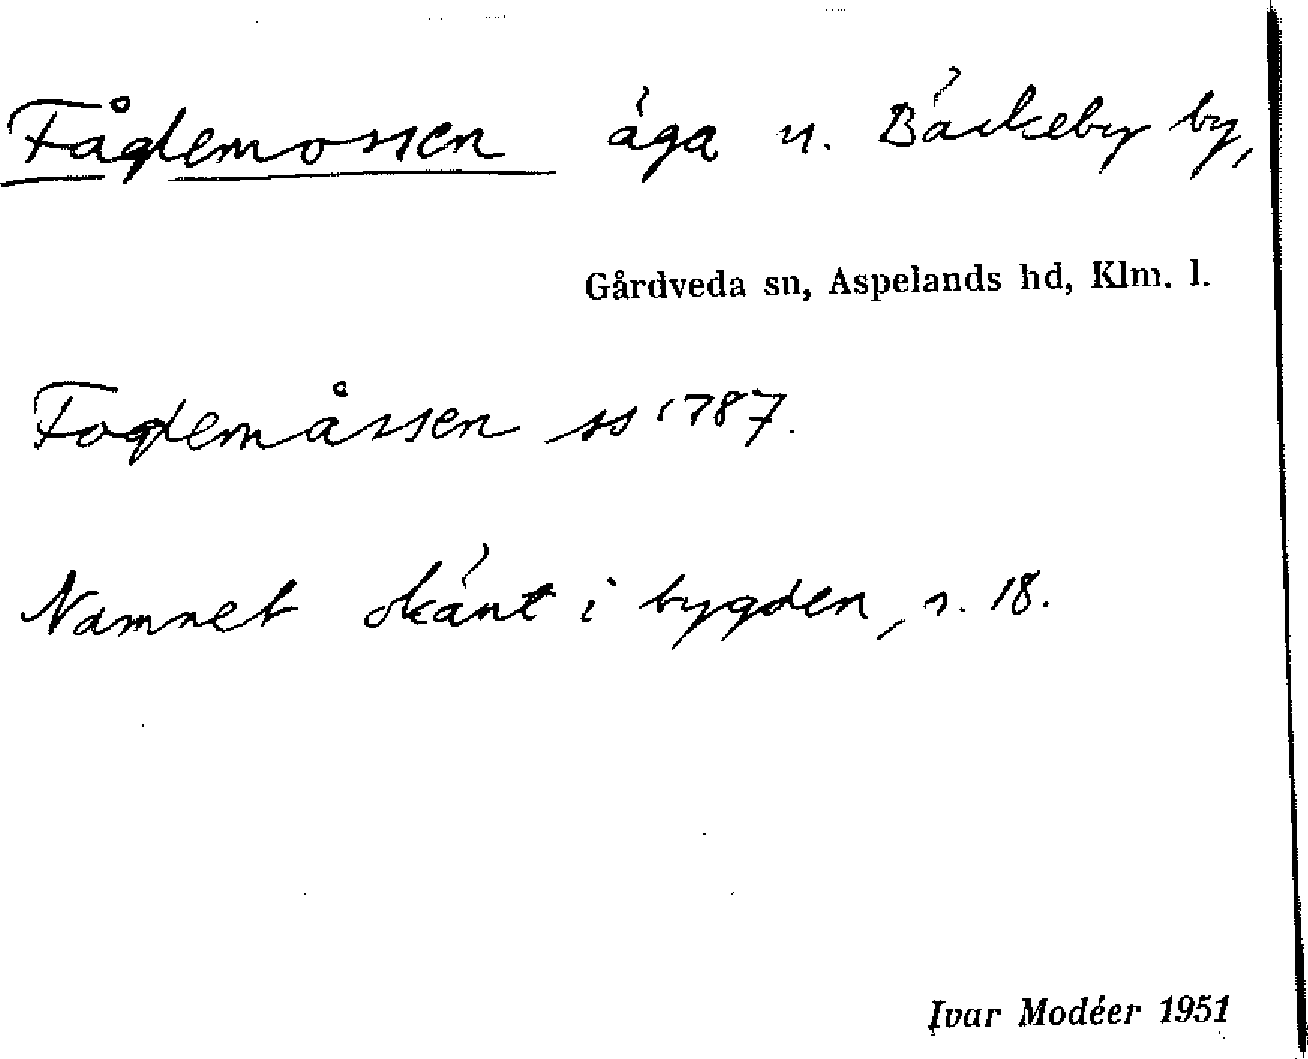 Fåglemossen äga u. Bäckeby by,
Gårdveda sn, Aspelands hd, Klm. l.
Foglemåssen ss 1787.
Namnet okänt i bygden, s. 18.
Ivar Modéer 1951